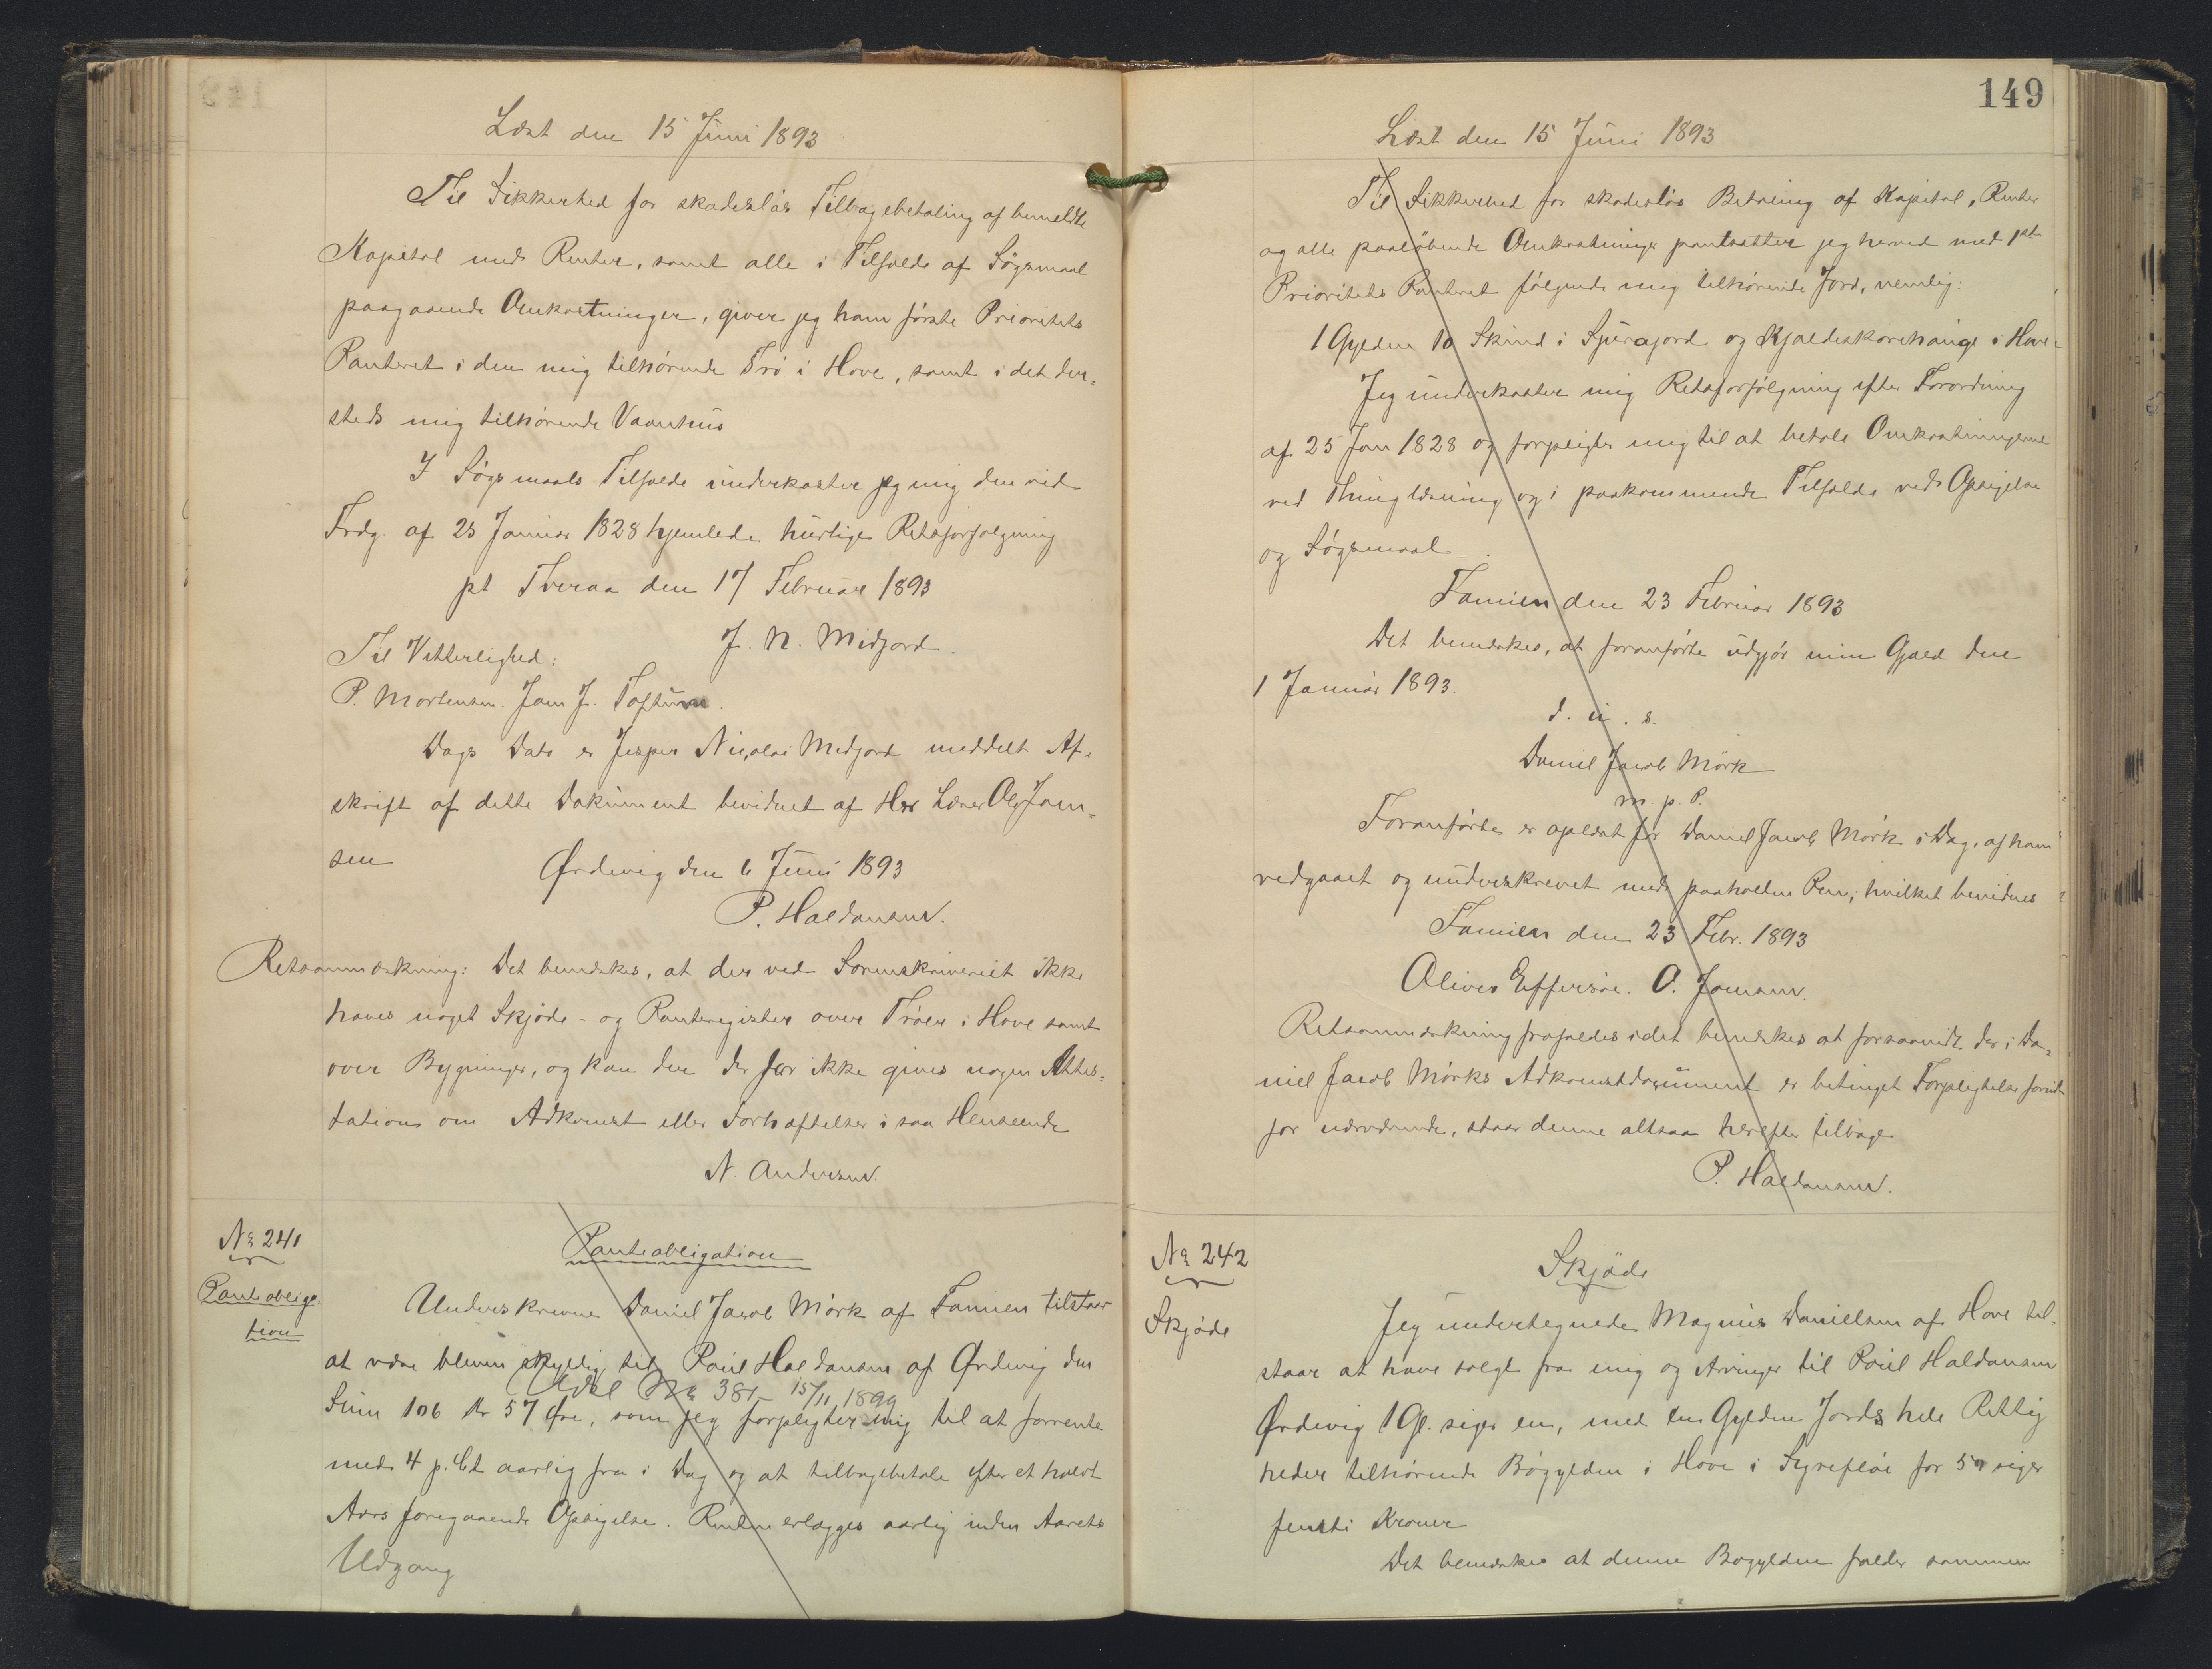 Læst den 15 Juni 1893
Til Sikkerhed for skadesløs Tilbagebetaling af bemeldte
Kapital med Renter, samt alle i Tilfælde af Søgsmaal
paagaaende Omkostninger, giver jeg ham første Prioritets
Panteret i den mig tilhørende Trö i Hove, samt i det der-
steds mig tilhørende Vaanhus
I Søgsmaals Tilfælde underkaster jeg mig den ved
Frdg. af 25 Januar 1828 hjemlede hurtige Retsforfølgning
pt Tveraa den 17 Februar 1893
J. N. Midjord.
Til Vitterlighed:
P. Mortensen. Joen J. Toftum.
Dags Dato er Jesper Nicolai Midjord meddelt Af-
skrift af dette Dokument bevidnet af Hr Lærer Ole Joen-
sen
Ørdevig den 6 Juni 1893
P. Haldansen.
Retsanmærkning: Det bemærkes, at der ved Sorenskriveriet ikke
haves noget Skjøde- og Panteregister over Tröer i Hove samt
over Bygninger, og kan der derfor ikke gives nogen Attes-
tation om Adkomst eller Forhæftelser i saa Henseende
N. Andersen.
No 241
Panteobliga-
tion
Panteobligation
Underskrevne Daniel Jacob Mørk af Famien tilstaar
at være bleven skyldig til Poul Haldansen af Ørdevig den
Udsl No 381 – 15/11 1899
Sum 106 Kr 57 Øre, som jeg forpligter mig til at forrente
med 4 p. Ct aarlig fra i Dag og at tilbagebetale efter et halvt
Aars foregaaende Opsigelse. Renten erlægges aarlig inden Aarets
Udgang
149
Læst den 15 Juni 1893
Til Sikkerhed for skadesløs Betaling af Kapital, Renter
og alle paaløbende Omkostninger pantsætter jeg herved med 1ste
Prioritets Panteret følgende mig tilhørende Jord, nemlig:
1 Gylden 10 Skind i Sjurajord og Kjaldeskorehauge i Hove-
Jeg underkaster mig Retsforfølgning efter Forordning
af 25 Jan 1828 og forpligter mig til at betale Omkostningerne
ved Thinglæsning og i paakommende Tilfælde ved Opsigelse
og Søgsmaal.
Famien den 23 Februar 1893
Det bemærkes, at foranførte udgjør min Gjæld den
1 Januar 1893.
d. u. s.
Daniel Jacob Mörk
m. p. P.
Foranførte er oplæst for Daniel Jacob Mørk i Dag, af ham
vedgaaet og underskrevet med paaholden Pen, hvilket bevidnes
Famien den 23 Febr. 1893
Oliver Effersøe. O. Joensen.
Retsanmærkning frafaldes idet bemærkes at forsaavidt der i Da-
niel Jacob Mørks Adkomstdocument er betinget Forpligtelse forud
for nærværende, staar denne altsaa herefter tilbage
P. Haldansen.
No 242
Skjøde
Skjøde
Jeg undertegnede Magnus Danielsen af Hove til-
staar at have solgt fra mig og Arvinger til Poul Haldansen
Ørdevig 1 Gl. siger en, med en Gylden Jords hele Rettig
heder tilhørende Bøgylden i Hove i for 50 siger
femti Kroner
Det bemærkes at denne Bøgylden falder sammen